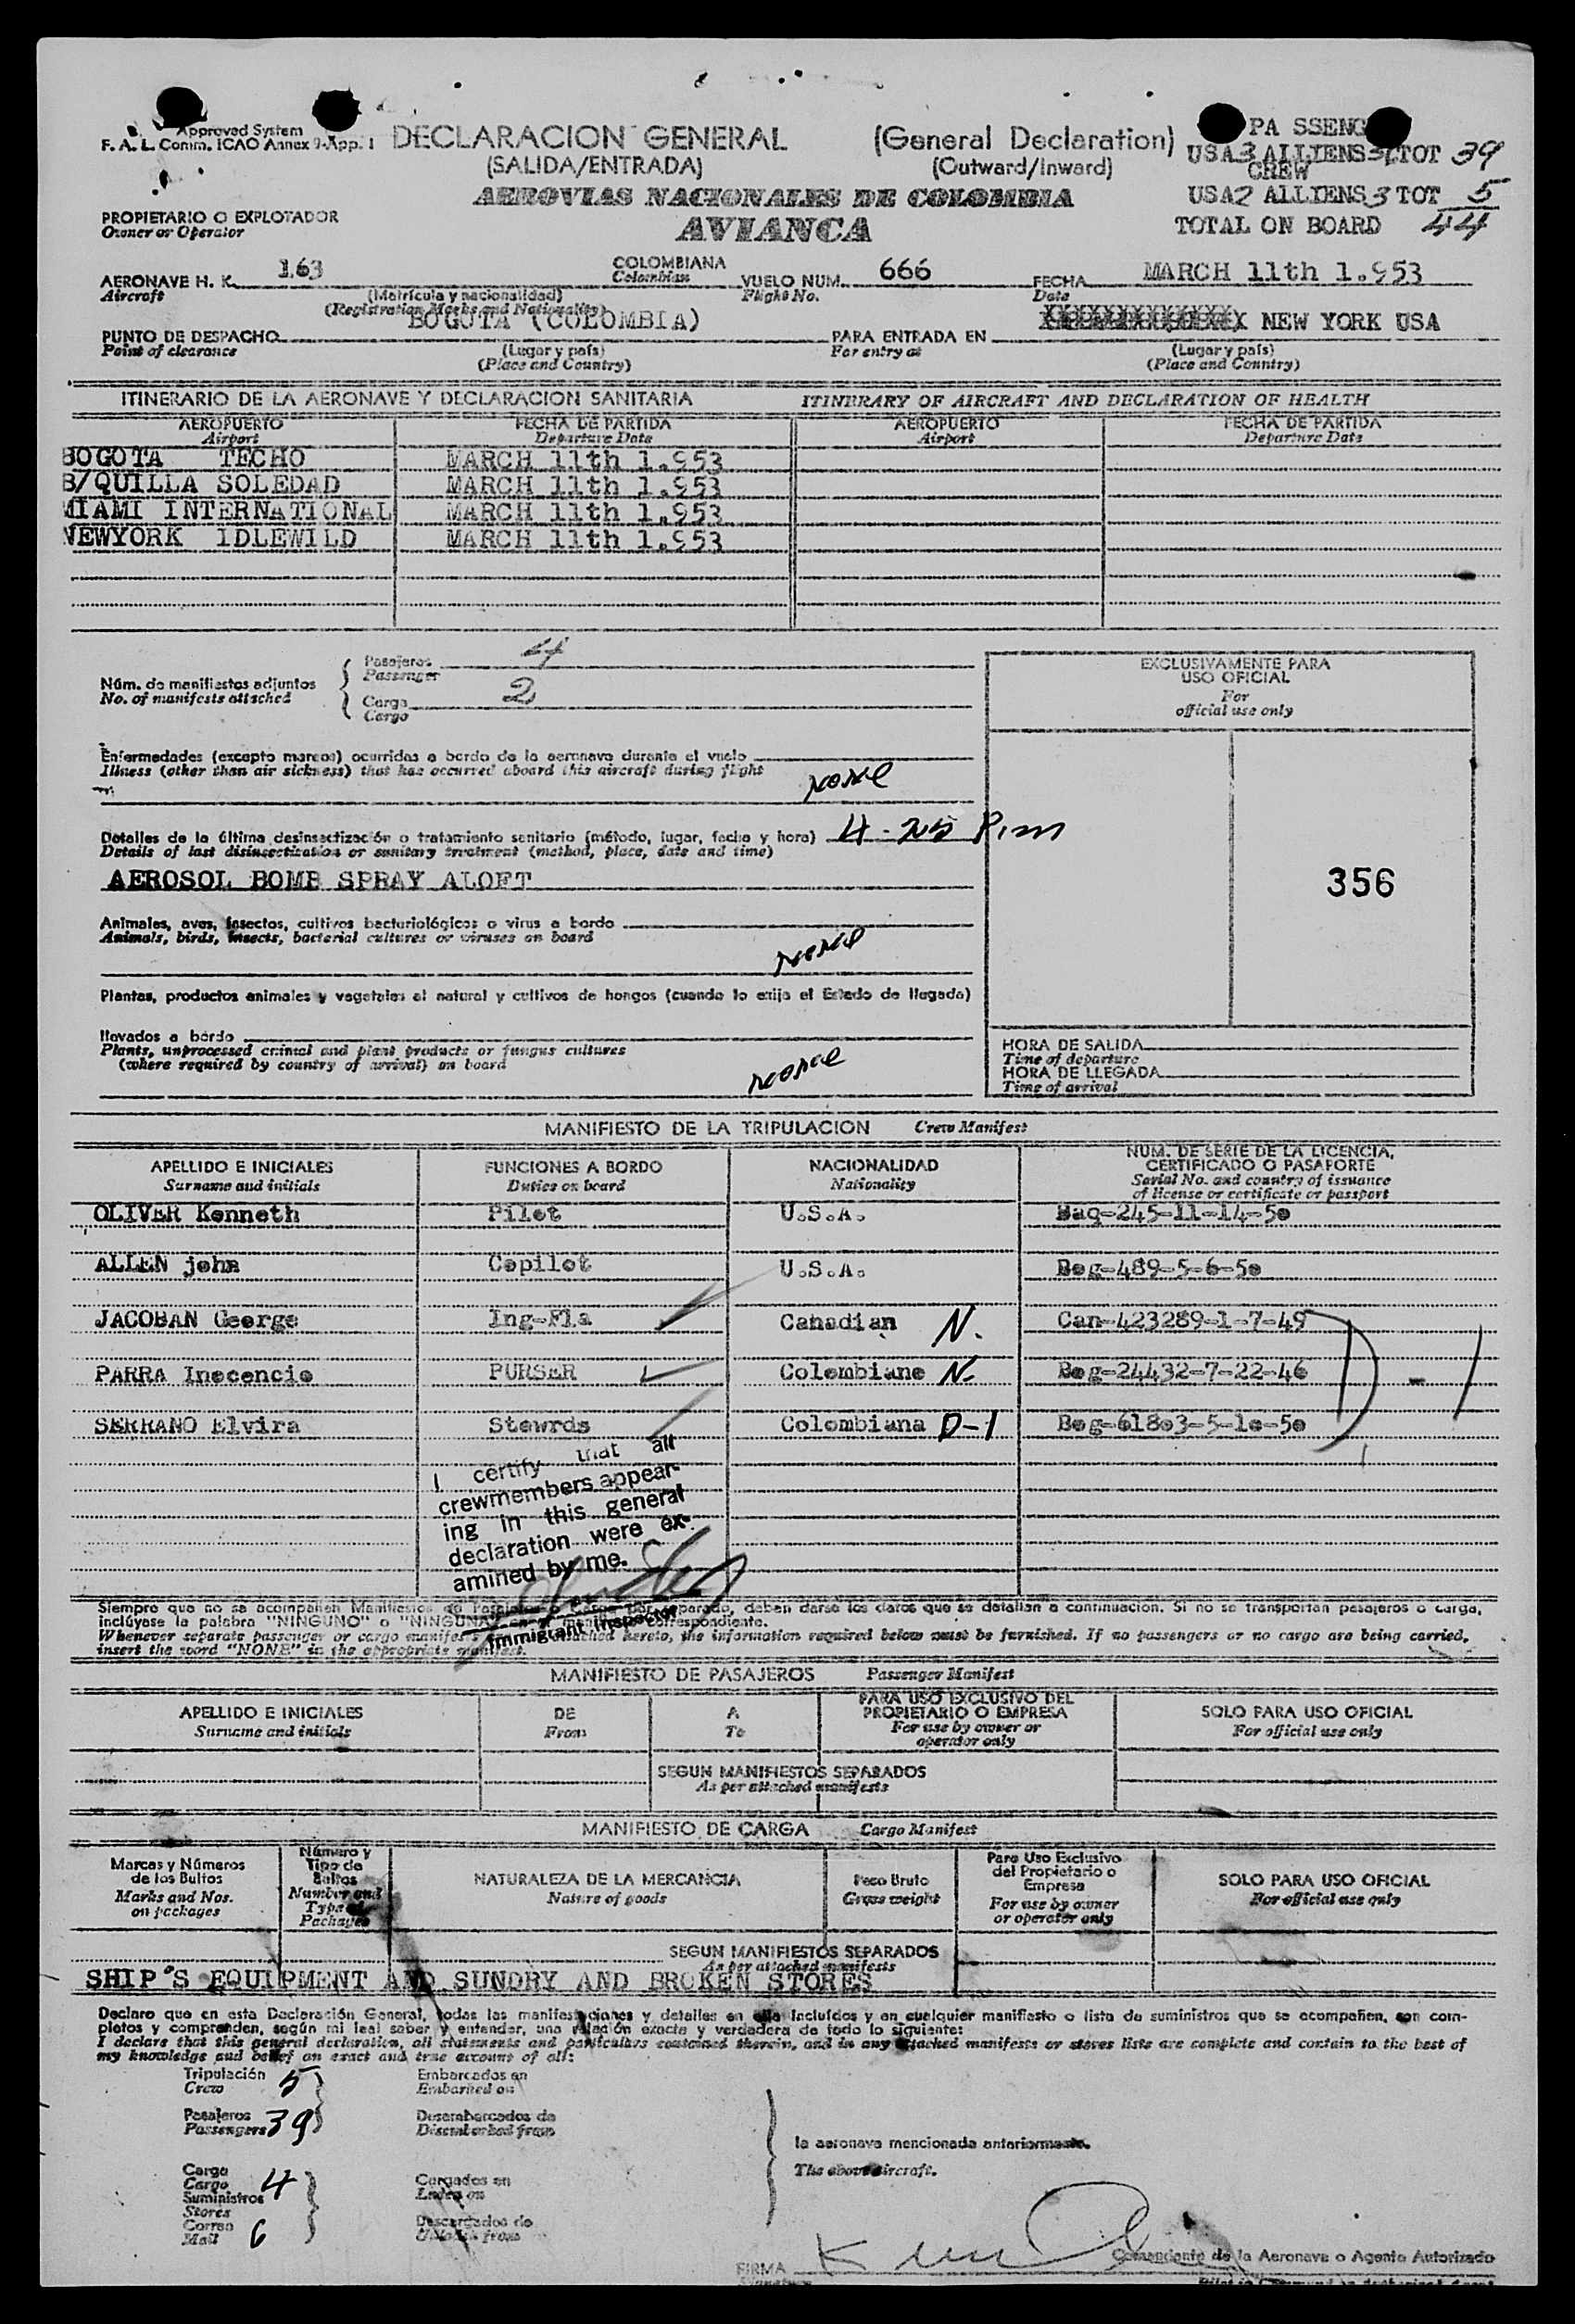 Approved System
F. A. L. Comm. ICAO Annex 9-App. 1
DECLARACION GENERAL (General Declaration)
(SALIDA/ENTRADA) (Outward/Inward)
PA SSENG
USA 3 ALLIENS TOT 39
CREW
USA 2 ALLIENS 3 TOT 5
TOTAL ON BOARD 44
AEROVIAS NACIONALES DE COLOMBIA
AVIANCA
PROPIETARIO O EXPLOTADOR
Owner or Operator
AERONAVE H. K. 163 COLOMBIANA VUELO NUM. 666 FECHA MARCH 11th 1.953
Aircraft Colombian Flight No. Date
(Matrícula y nacionalidad)
(Registration Marks and Nationality)
PUNTO DE DESPACHO BOGOTA (COLOMBIA) PARA ENTRADA EN NEW YORK USA
Point of clearance (Lugar y país) For entry at (Lugar y país)
(Place and Country) (Place and Country)
ITINERARIO DE LA AERONAVE Y DECLARACION SANITARIA ITINERARY OF AIRCRAFT AND DECLARATION OF HEALTH
AEROPUERTO FECHA DE PARTIDA AEROPUERTO FECHA DE PARTIDA
Airport Departure Date Airport Departure Date
BOGOTA TECHO MARCH 11th 1.953
B/QUILLA SOLEDAD MARCH 11th 1.953
MIAMI INTERNATIONAL MARCH 11th 1.953
NEWYORK IDLEWILD MARCH 11th 1.953
Núm. de manifiestos adjuntos
No. of manifests attached
Pasajeros 4
Passenger
Carga 2
Cargo
EXCLUSIVAMENTE PARA
USO OFICIAL
For
official use only
Enfermedades (excepto mareos) ocurridas a bordo de la aeronave durante el vuelo
Illness (other than air sickness) that has occurred aboard this aircraft during flight
None
Detalles de la última desinsectización o tratamiento sanitario (método, lugar, fecha y hora)
Details of last disinsectization or sanitary treatment (method, place, date and time)
AEROSOL BOMB SPRAY ALOFT
356
Animales, aves, insectos, cultivos bacteriológicos o virus a bordo
Animals, birds, insects, bacterial cultures or viruses on board
None
Plantas, productos animales y vegetales al natural y cultivos de hongos (cuando lo exija el Estado de llegada)
llevados a bordo
Plants, unprocessed animal and plant products or fungus cultures
(where required by country of arrival) on board
None
HORA DE SALIDA
Time of departure
HORA DE LLEGADA
Time of arrival
MANIFIESTO DE LA TRIPULACION Crew Manifest
APELLIDO E INICIALES FUNCIONES A BORDO NACIONALIDAD NUM. DE SERIE DE LA LICENCIA, CERTIFICADO O PASAPORTE
Surname and initials Duties on board Nationality Serial No. and country of issuance of license or certificate or passport
OLIVER Kenneth Pilot U.S.A. Baq-245-11-14-5o
ALLEN john Copilot U.S.A. Bog-489-5-6-5o
JACOBAN George Ing-Fla Canadian N. Can-423289-1-7-49
PARRA Inocencio PURSER Colombiano N. Bog-24432-7-22-46
D-1
SERRANO Elvira Stewrds Colombiana D-1 Bog-618o3-5-1o-5o
I certify that all
crewmembers appear-
ing in this general
declaration were ex-
amined by me.
Immigrant Inspector
Siempre que no se acompañen Manifiestos de Pasajeros o Carga por separado, deben darse los datos que se detallan a continuación. Si no se transportan pasajeros o carga,
inclúyase la palabra "NINGUNO" o "NINGUNA" en el manifiesto correspondiente.
Whenever separate passenger or cargo manifests are not attached hereto, the information required below must be furnished. If no passengers or no cargo are being carried,
insert the word "NONE" in the appropriate manifest.
MANIFIESTO DE PASAJEROS Passenger Manifest
APELLIDO E INICIALES DE A PARA USO EXCLUSIVO DEL PROPIETARIO O EMPRESA SOLO PARA USO OFICIAL
Surname and initials From To For use by owner or operator only For official use only
SEGUN MANIFIESTOS SEPARADOS
As per attached manifests
MANIFIESTO DE CARGA Cargo Manifest
Marcas y Números de los Bultos Número y Tipo de Bultos NATURALEZA DE LA MERCANCIA Peso Bruto Para Uso Exclusivo del Propietario o Empresa SOLO PARA USO OFICIAL
Marks and Nos. on packages Number and Type of Packages Nature of goods Gross weight For use by owner or operator only For official use only
SEGUN MANIFIESTOS SEPARADOS
As per attached manifests
SHIP'S EQUIPMENT AND SUNDRY AND BROKEN STORES
Declaro que en esta Declaración General, todas las manifestaciones y detalles en ella incluídos y en cualquier manifiesto o lista de suministros que se acompañen, son com-
pletos y comprenden, según mi leal saber y entender, una relación exacta y verdadera de todo lo siguiente:
I declare that this general declaration, all statements and particulars contained therein, and in any attached manifests or stores lists are complete and contain to the best of
my knowledge and belief an exact and true account of all:
Tripulación 5 Embarcados en
Crew Embarked on
Pasajeros 39 Desembarcados de
Passengers Disembarked from
la aeronave mencionada anteriormente.
The above aircraft.
Carga
Cargo 4 Cargados en
Suministros Laden on
Stores
Correo 6 Descargados de
Mail Unladen from
FIRMA Comandante de la Aeronave o Agente Autorizado